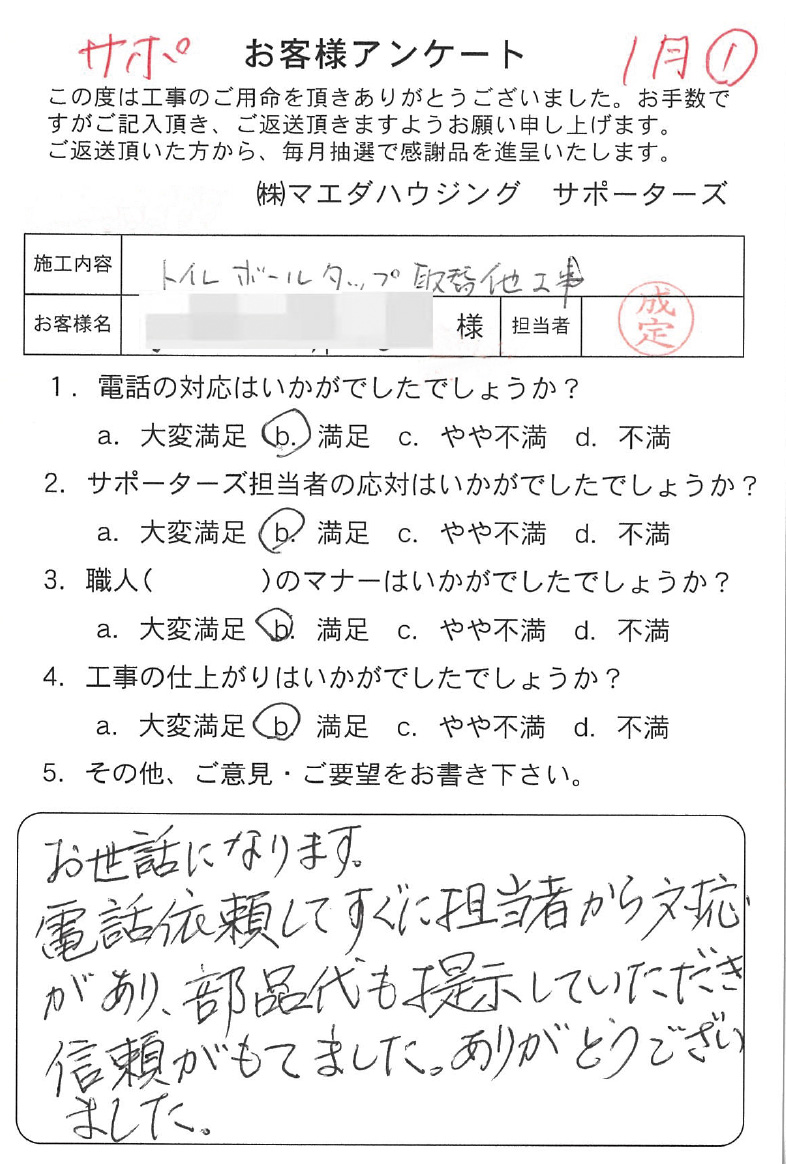 サポ お客様アンケート 1月①
この度は工事のご用命を頂きありがとうございました。お手数で
すがご記入頂き、ご返送頂きますようお願い申し上げます。
ご返送頂いた方から、毎月抽選で感謝品を進呈いたします。
㈱マエダハウジング サポーターズ
施工内容 トイレボールタップ取替他工事
お客様名 様 担当者 成定
1. 電話の対応はいかがでしたでしょうか？
a. 大変満足 b. 満足 c. やや不満 d. 不満
2. サポーターズ担当者の応対はいかがでしたでしょうか？
a. 大変満足 b. 満足 c. やや不満 d. 不満
3. 職人( )のマナーはいかがでしたでしょうか？
a. 大変満足 b. 満足 c. やや不満 d. 不満
4. 工事の仕上がりはいかがでしたでしょうか？
a. 大変満足 b. 満足 c. やや不満 d. 不満
5. その他、ご意見・ご要望をお書き下さい。
お世話になります。
電話依頼してすぐに担当者から対応
があり、部品代も提示していただき
信頼がもてました。ありがとうござい
ました。